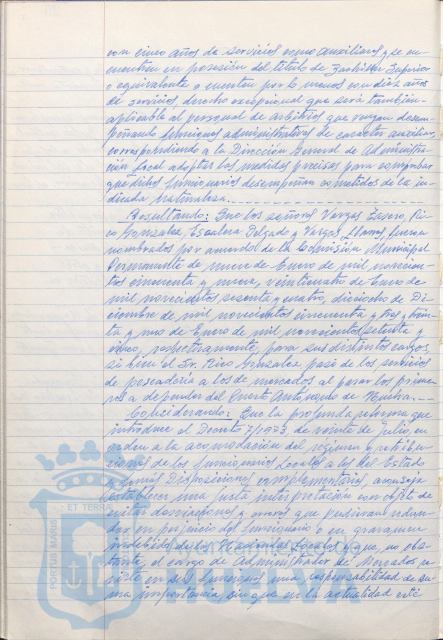 con cinco años de servicios como auxiliares y se en-
cuentren en posesión del título de Bachiller Superior
o equivalente o cuenten por lo menos con diez años
de servicios, derecho excepcional que será también
aplicable al personal de arbitrios que vengan desem-
peñando funciones administrativas de carácter auxiliar,
correspondiendo a la Dirección General de Administra-
ción Local adoptar las medidas precisas para comprobar
que dichos funcionarios desempeñan cometidos de la in-
dicada naturaleza.
Resultando: Que los señores Vargas Tasero, Ri-
co Gonzalez, Escalera Delgado y Vargas Llanes, fueron
nombrados por acuerdo de la Comisión Municipal
Permanente de nueve de Enero de mil novecien-
tos cincuenta y nueve, veinticuatro de Enero de
mil novecientos sesenta y cuatro, dieciocho de Di-
ciembre de mil novecientos cincuenta y tres y trein-
ta y uno de Enero de mil novecientos setenta y
cinco, respectivamente, para sus distintos cargos,
si bien el Sr. Rico Gonzalez pasó de los servicios
de pescadería a los de mercados al pasar los prime-
ros a depender del Puerto Autónomo de Huelva.
Considerando: Que la profunda reforma que
introduce el Decreto 7/1973 de veinte de julio en
orden a la acomodación del régimen y retribu-
ciones de los funcionarios Locales a los del Estado
y demás Disposiciones complementarias, aconseja
establecer una justa interpretación con objeto de
evitar y errores que pudieran redun-
dar en perjuicio del funcionario o en gravamen
indebido de las Haciendas Locales y que, no obs-
tante, el cargo de Administrador de Mercados re-
viste en sus funciones una responsabilidad de su-
ma importancia sin que en la actualidad esté
PORTUS MARIS ET TERRAE
HUELVA